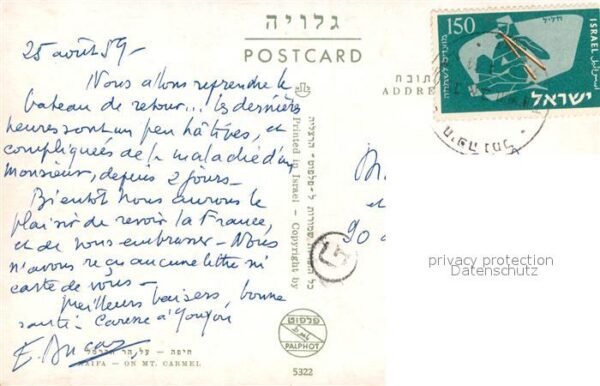 גלויה
POSTCARD
25 août 59 -
Nous allons reprendre le
bateau de retour... les dernières
heures sont un peu hâtives, et
compliquées de la maladie d'un
monsieur, depuis 2 jours -
Bientôt nous aurons le
plaisir de revoir la France,
et de vous embrasser - Nous
n'avons reçu aucune lettre ni
carte de vous -
Meilleurs baisers, bonne
santé - Caresse à Youyou
חיפה - על הר הכרמל
HAIFA - ON MT. CARMEL
Printed in Israel - Copyright by
פלפוט
PALPHOT
5322
כתובת
ADDRE
150
חליל
ISRAEL
اسرائيل
ישראל
90
privacy protection
Datenschutz